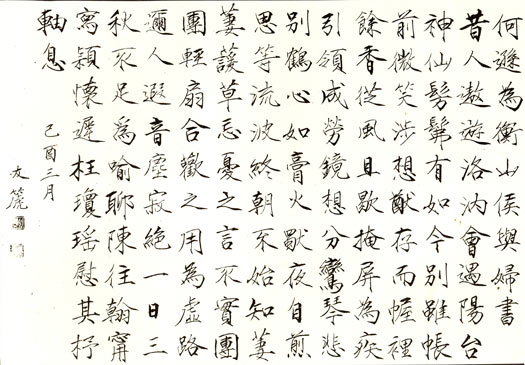 何遜為衡山侯與婦書
昔人遨遊洛汭會遇陽台
神仙髣髴有如今別雖帳
前微笑涉想猷存而幄裡
餘香從風且歇掩屏為疾
引領成勞鏡想分鸞琴悲
別鶴心如膏火夜自煎
思等流波終朝不始知萋
萋諼草忘憂之言不實團
團輕扇合歡之用為虛路
邇人遐音塵寂絕一日三
秋不足為喻聊陳往翰甯
寫懷遲枉瓊瑤慰其杼
軸息
己酉三月
友